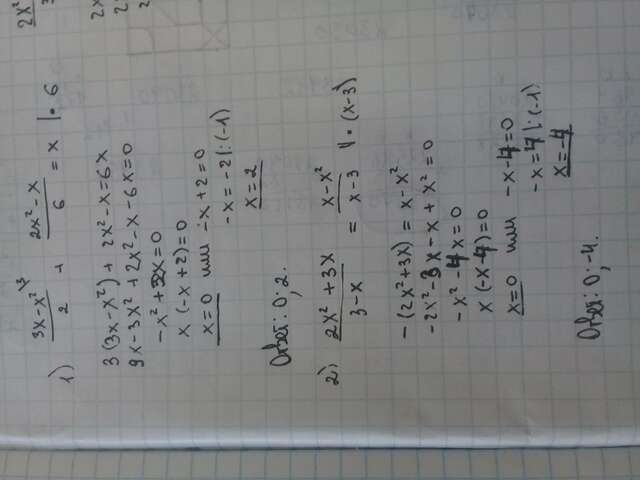 1) (3x-x²)/2 \3 + (2x²-x)/6 = x |·6
3(3x-x²)+2x²-x=6x
9x-3x²+2x²-x-6x=0
-x²+2x=0
x(-x+2)=0
x=0 или -x+2=0
-x=-2|:(-1)
x=2
Ответ: 0; 2.
2) (2x²+3x)/(3-x) = (x-x²)/(x-3) |·(x-3)
-(2x²+3x)=x-x²
-2x²-3x-x+x²=0
-x²-4x=0
x(-x-4)=0
x=0 или -x-4=0
-x=4|:(-1)
x=-4
Ответ: 0; -4.